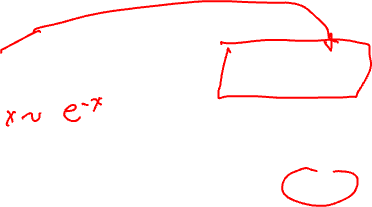 x ~ e^-x